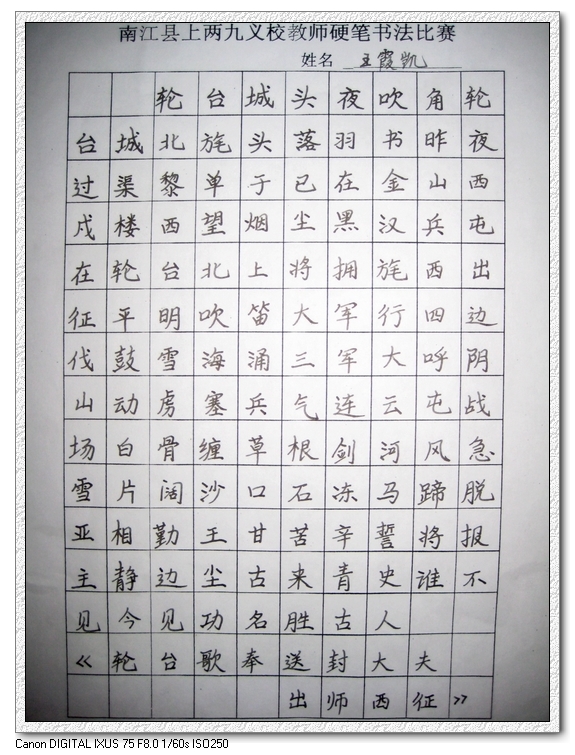 南江县上两九义校教师硬笔书法比赛
姓名 王霞凯
轮台城头夜吹角轮
台城北旄头落羽书昨夜
过渠黎单于已在金山西
戍楼西望烟尘黑汉兵屯
在轮台北上将拥旄西出
征平明吹笛大军行四边
伐鼓雪海涌三军大呼阴
山动虏塞兵气连云屯战
场白骨缠草根剑河风急
雪片阔沙口石冻马蹄脱
亚相勤王甘苦辛誓将报
主静边尘古来青史谁不
见今见功名胜古人
《轮台歌奉送封大夫
出师西征》
Canon DIGITAL IXUS 75 F8.0 1/60s ISO250